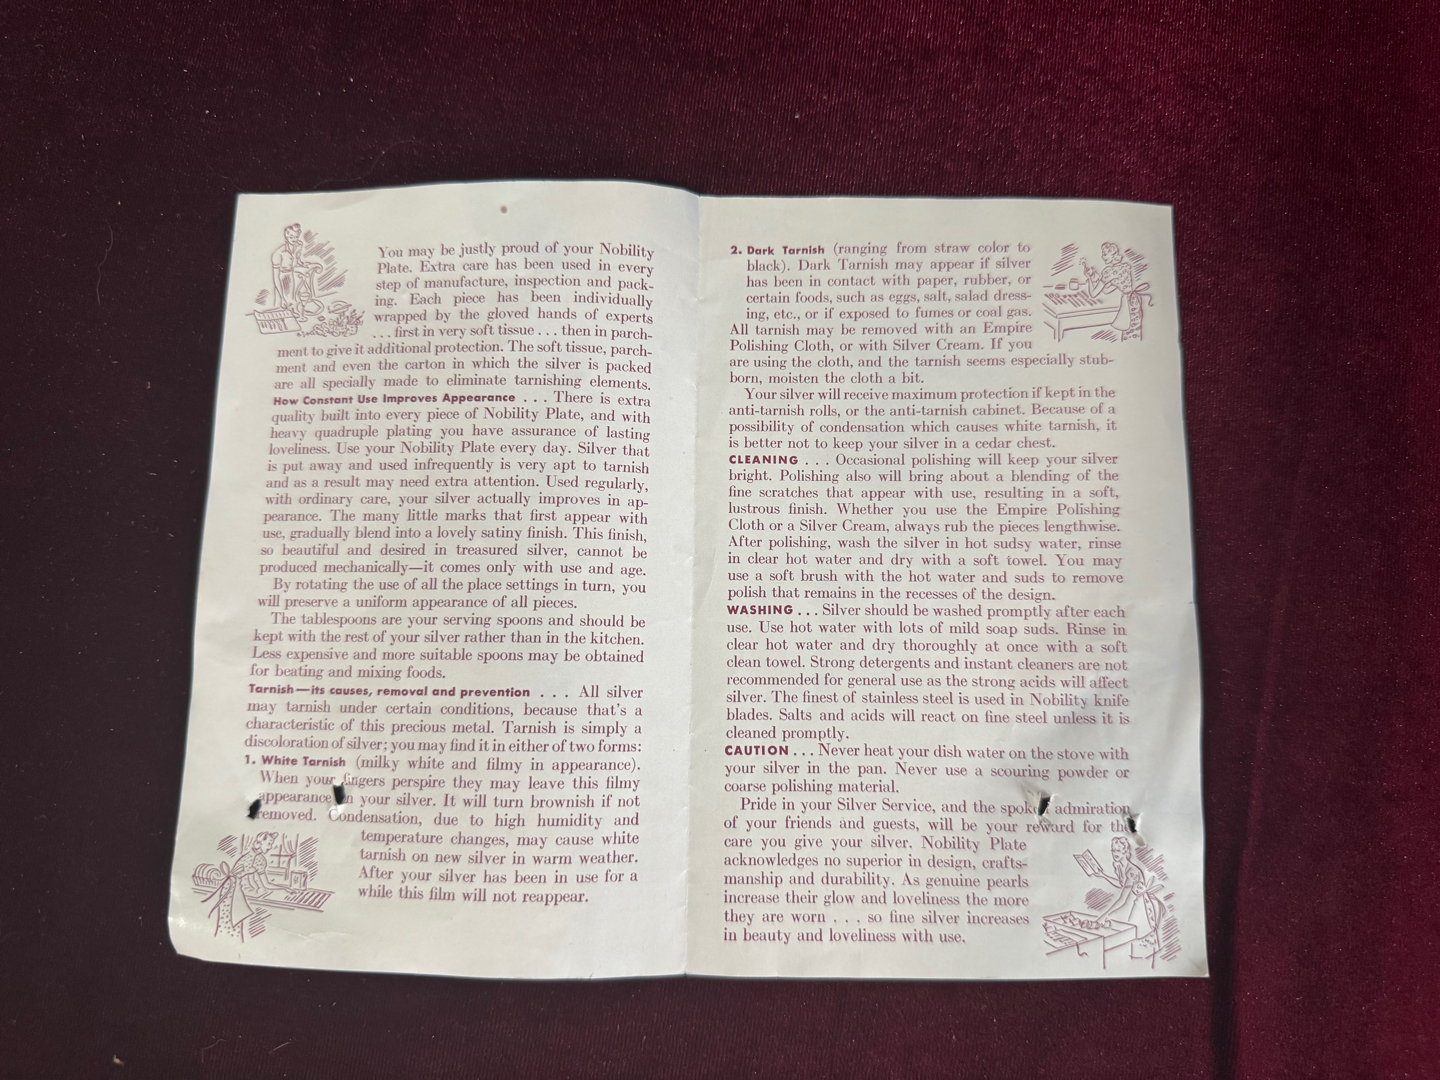 You may be justly proud of your Nobility
Plate. Extra care has been used in every
step of manufacture, inspection and pack-
ing. Each piece has been individually
wrapped by the gloved hands of experts
. . . first in very soft tissue . . . then in parch-
ment to give it additional protection. The soft tissue, parch-
ment and even the carton in which the silver is packed
are all specially made to eliminate tarnishing elements.
How Constant Use Improves Appearance . . . There is extra
quality built into every piece of Nobility Plate, and with
heavy quadruple plating you have assurance of lasting
loveliness. Use your Nobility Plate every day. Silver that
is put away and used infrequently is very apt to tarnish
and as a result may need extra attention. Used regularly,
with ordinary care, your silver actually improves in ap-
pearance. The many little marks that first appear with
use, gradually blend into a lovely satiny finish. This finish,
so beautiful and desired in treasured silver, cannot be
produced mechanically—it comes only with use and age.
By rotating the use of all the place settings in turn, you
will preserve a uniform appearance of all pieces.
The tablespoons are your serving spoons and should be
kept with the rest of your silver rather than in the kitchen.
Less expensive and more suitable spoons may be obtained
for beating and mixing foods.
Tarnish—its causes, removal and prevention . . . All silver
may tarnish under certain conditions, because that's a
characteristic of this precious metal. Tarnish is simply a
discoloration of silver; you may find it in either of two forms:
1. White Tarnish (milky white and filmy in appearance).
When your fingers perspire they may leave this filmy
appearance on your silver. It will turn brownish if not
removed. Condensation, due to high humidity and
temperature changes, may cause white
tarnish on new silver in warm weather.
After your silver has been in use for a
while this film will not reappear.
2. Dark Tarnish (ranging from straw color to
black). Dark Tarnish may appear if silver
has been in contact with paper, rubber, or
certain foods, such as eggs, salt, salad dress-
ing, etc., or if exposed to fumes or coal gas.
All tarnish may be removed with an Empire
Polishing Cloth, or with Silver Cream. If you
are using the cloth, and the tarnish seems especially stub-
born, moisten the cloth a bit.
Your silver will receive maximum protection if kept in the
anti-tarnish rolls, or the anti-tarnish cabinet. Because of a
possibility of condensation which causes white tarnish, it
is better not to keep your silver in a cedar chest.
CLEANING . . . Occasional polishing will keep your silver
bright. Polishing also will bring about a blending of the
fine scratches that appear with use, resulting in a soft,
lustrous finish. Whether you use the Empire Polishing
Cloth or a Silver Cream, always rub the pieces lengthwise.
After polishing, wash the silver in hot sudsy water, rinse
in clear hot water and dry with a soft towel. You may
use a soft brush with the hot water and suds to remove
polish that remains in the recesses of the design.
WASHING . . . Silver should be washed promptly after each
use. Use hot water with lots of mild soap suds. Rinse in
clear hot water and dry thoroughly at once with a soft
clean towel. Strong detergents and instant cleaners are not
recommended for general use as the strong acids will affect
silver. The finest of stainless steel is used in Nobility knife
blades. Salts and acids will react on fine steel unless it is
cleaned promptly.
CAUTION . . . Never heat your dish water on the stove with
your silver in the pan. Never use a scouring powder or
coarse polishing material.
Pride in your Silver Service, and the spoken admiration
of your friends and guests, will be your reward for the
care you give your silver. Nobility Plate
acknowledges no superior in design, crafts-
manship and durability. As genuine pearls
increase their glow and loveliness the more
they are worn . . . so fine silver increases
in beauty and loveliness with use.